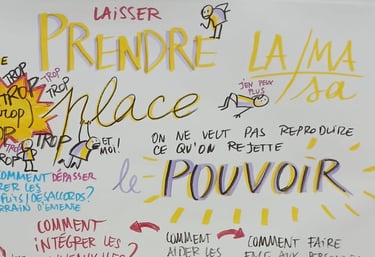 LAISSER
PRENDRE LA/MA
sa
place
J'EN PEUX
PLUS
TROP
TROP
TROP
TROP
trop
TROP
TROP
ET
MOI!
DÉPASSER
ON NE VEUT PAS REPRODUIRE
CE QU'ON REJETTE
le POUVOIR
COMMENT
COMMENT
INTÉGRER LES
COMMENT
AIDER LES
COMMENT FAIRE